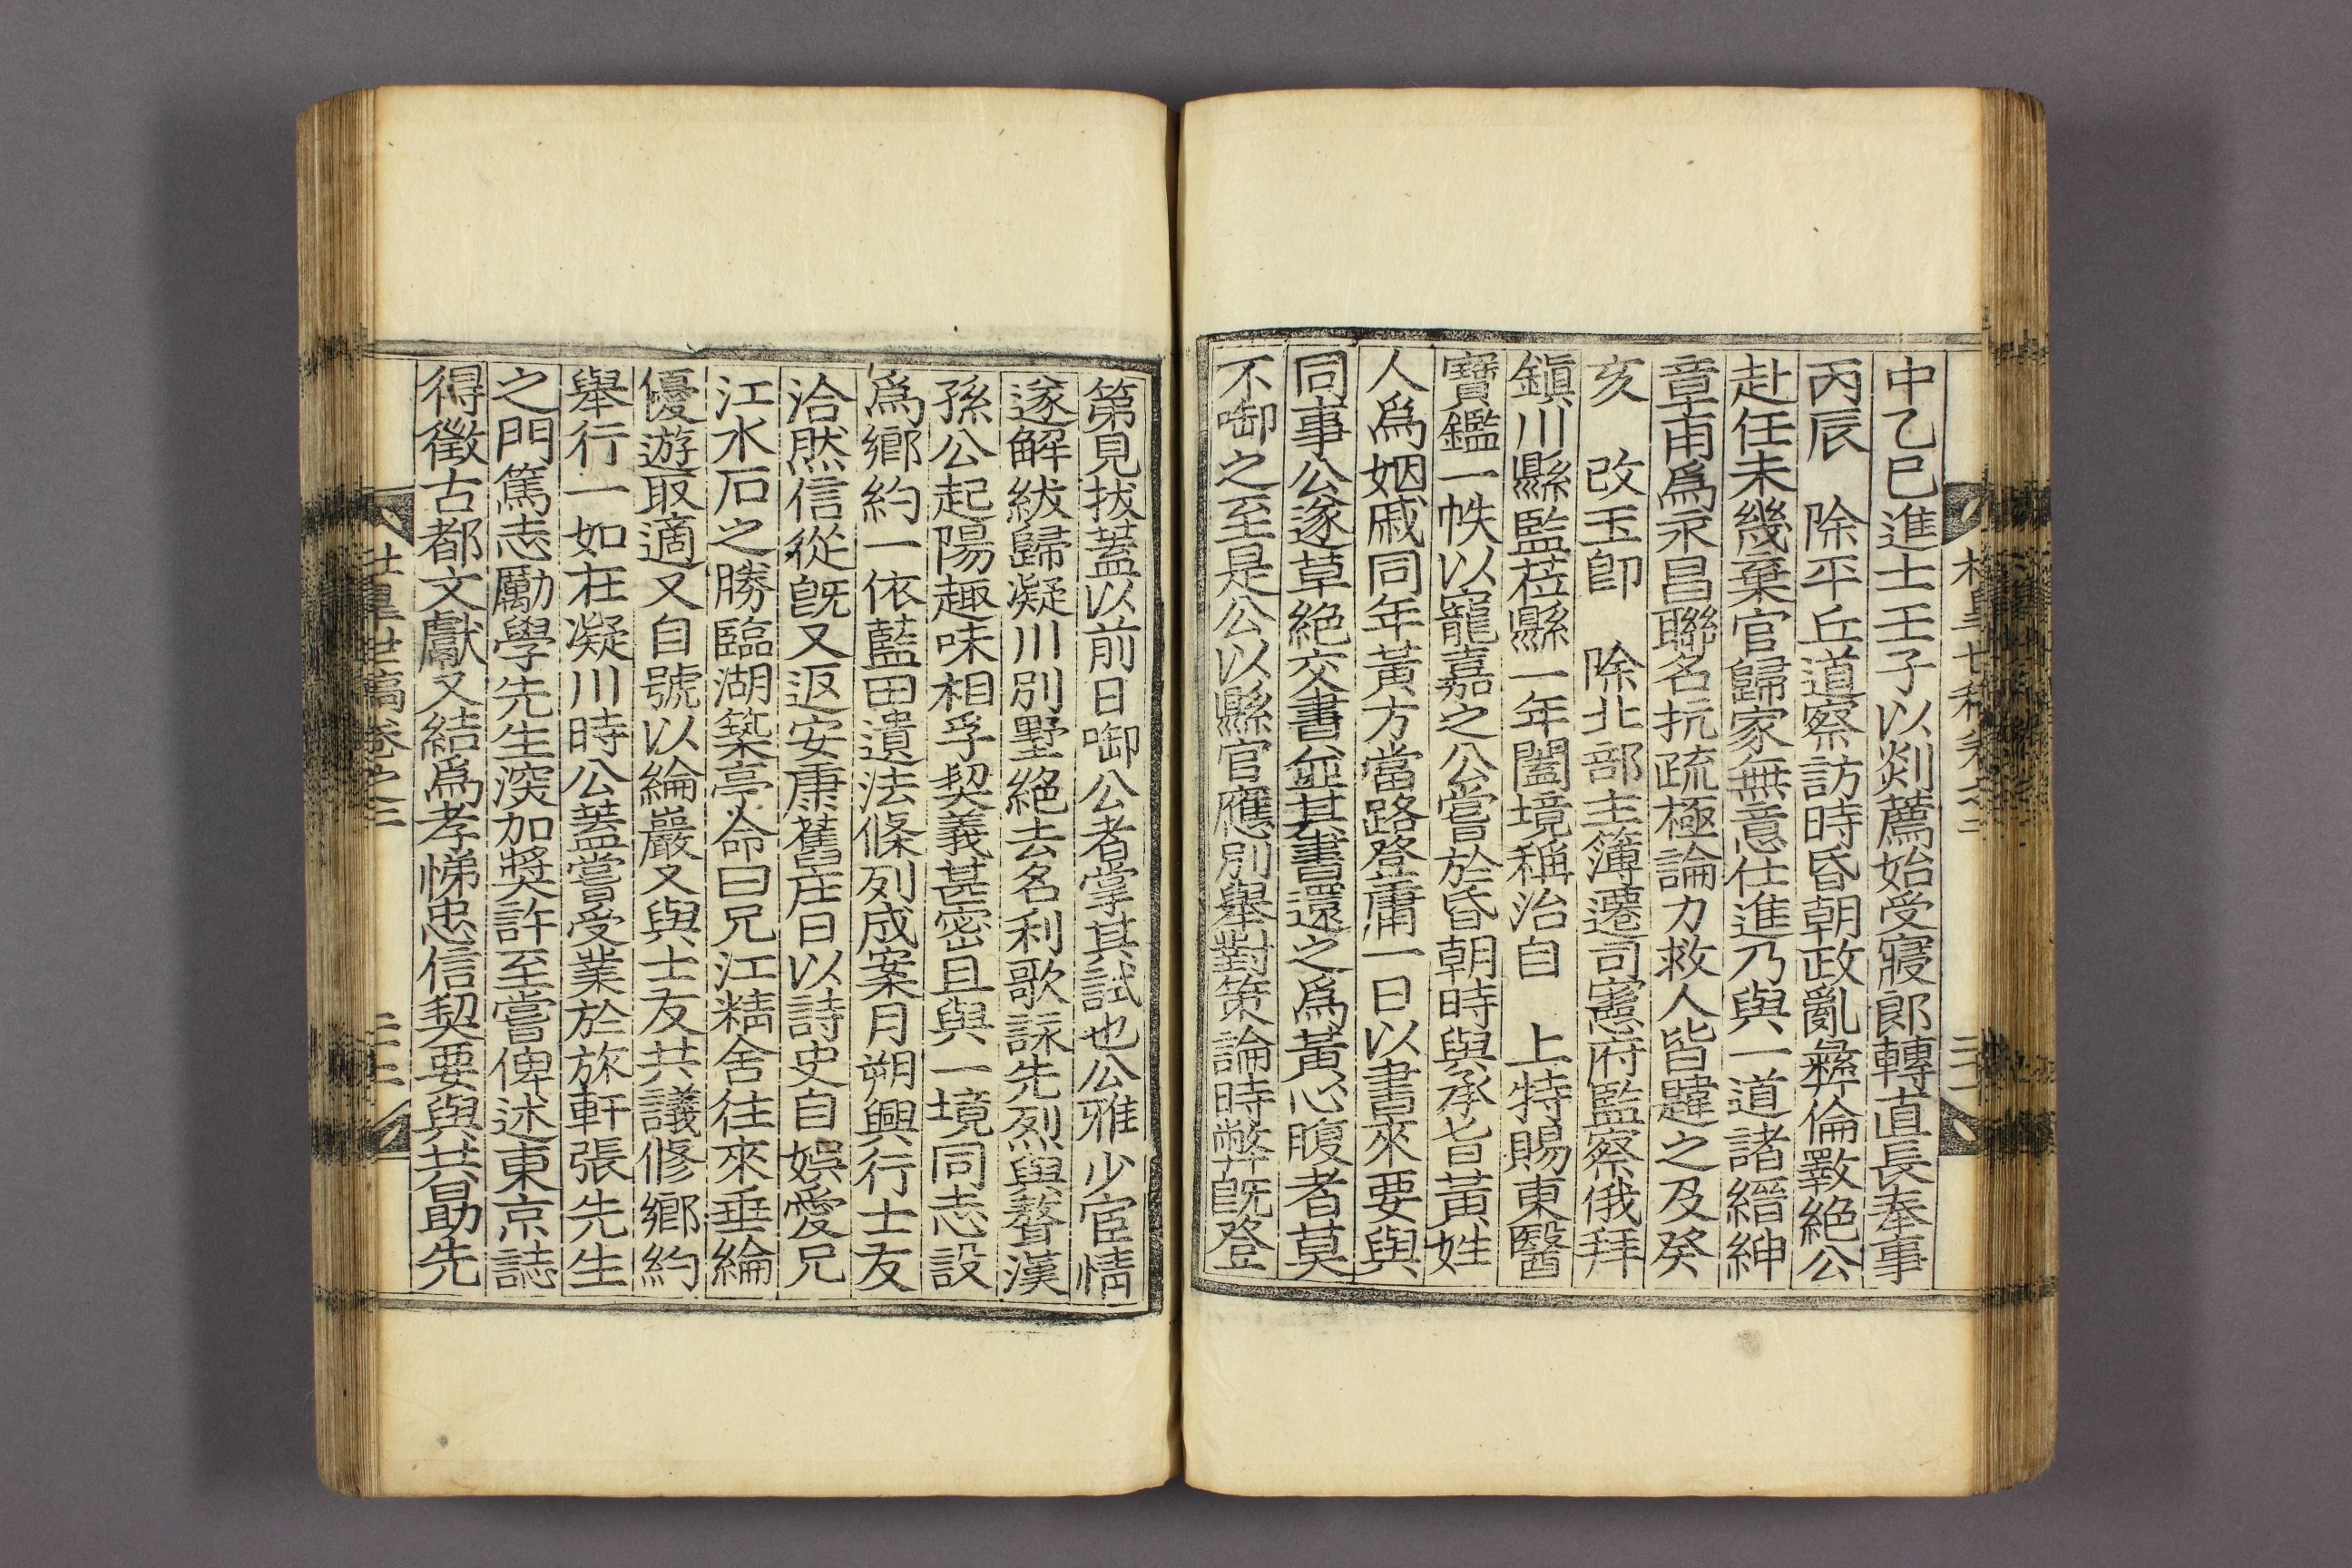 中乙巳進士壬子以剡薦始受寢郞轉直長奉事
丙辰 除平丘道察訪時昏朝政亂彝倫斁絕公
赴任未幾棄官歸家無意仕進乃與一道諸縉紳
章甫爲永昌聯名抗疏極論力救人皆韙之及癸
亥 改玉卽 除北部主簿遷司憲府監察俄拜
鎭川縣監莅縣一年闔境稱治自 上特賜東醫
寶鑑一帙以寵嘉之公嘗於昏朝時與承旨黃姓
人爲姻戚同年黃方當路登庸一日以書來要與
同事公遂草絕交書並其書還之爲黃心腹者莫
不啣之至是公以縣官應別擧對策論時弊旣登
第見拔蓋以前日啣公者掌其試也公雅少宦情
遂解紱歸凝川別墅絕去名利歌詠先烈與聱漢
孫公起陽趣味相孚契義甚密且與一境同志設
爲鄕約一依藍田遺法條列成案月朔興行士友
洽然信從旣又返安康舊庄日以詩史自娛愛兄
江水石之勝臨湖築亭命曰兄江精舍往來垂綸
優遊取適又自號以綸巖又與士友共議修鄕約
舉行一如在凝川時公蓋嘗受業於旅軒張先生
之門篤志勵學先生深加奬許至嘗俾述東京誌
得徵古都文獻又結爲孝悌忠信契要與共勗先
世稿卷之三